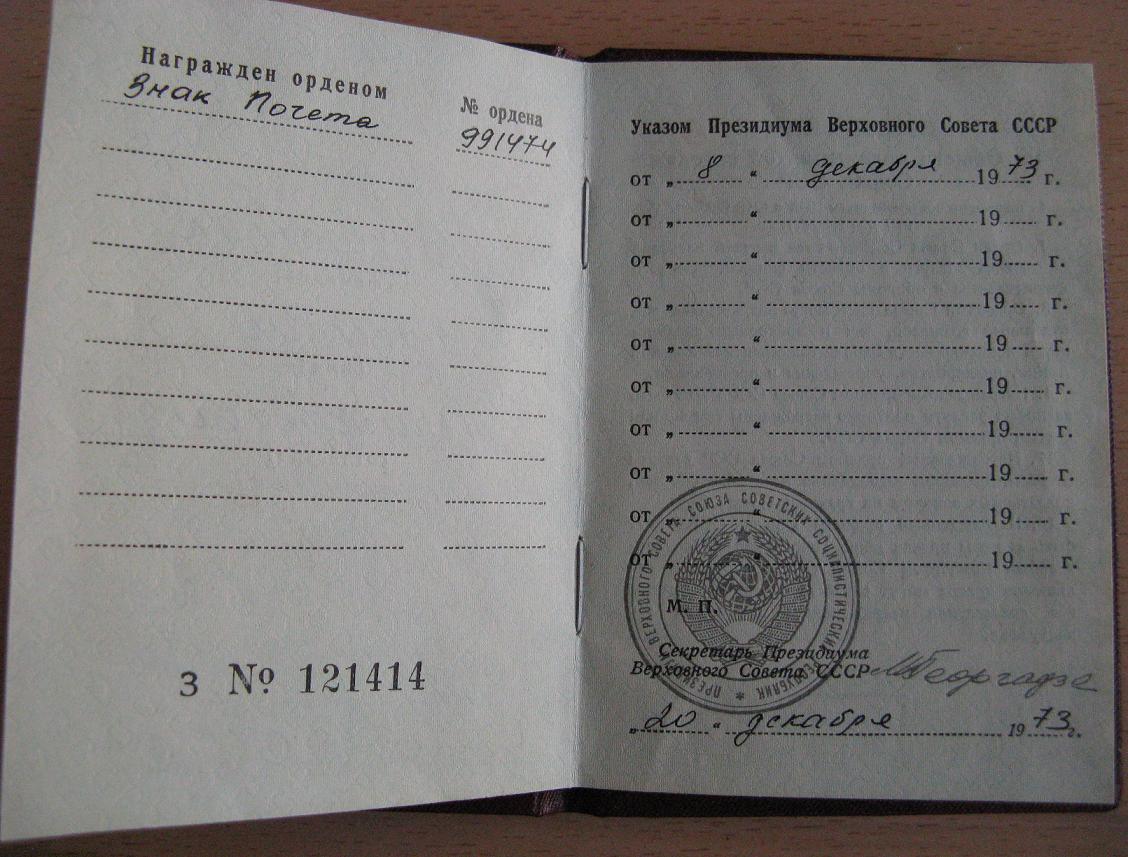 Награжден орденом
Знак Почета
№ ордена
991474
З № 121414
Указом Президиума Верховного Совета СССР
от „ 8 “ декабря 1973 г.
от „ “ 19 г.
от „ “ 19 г.
от „ “ 19 г.
от „ “ 19 г.
от „ “ 19 г.
от „ “ 19 г.
от „ “ 19 г.
от „ “ 19 г.
от „ “ 19 г.
ПРЕЗИДИУМ ВЕРХОВНОГО СОВЕТА СОЮЗА СОВЕТСКИХ СОЦИАЛИСТИЧЕСКИХ РЕСПУБЛИК
М. П.
Секретарь Президиума
Верховного Совета СССР МГеоргадзе
„20“ декабря 1973 г.